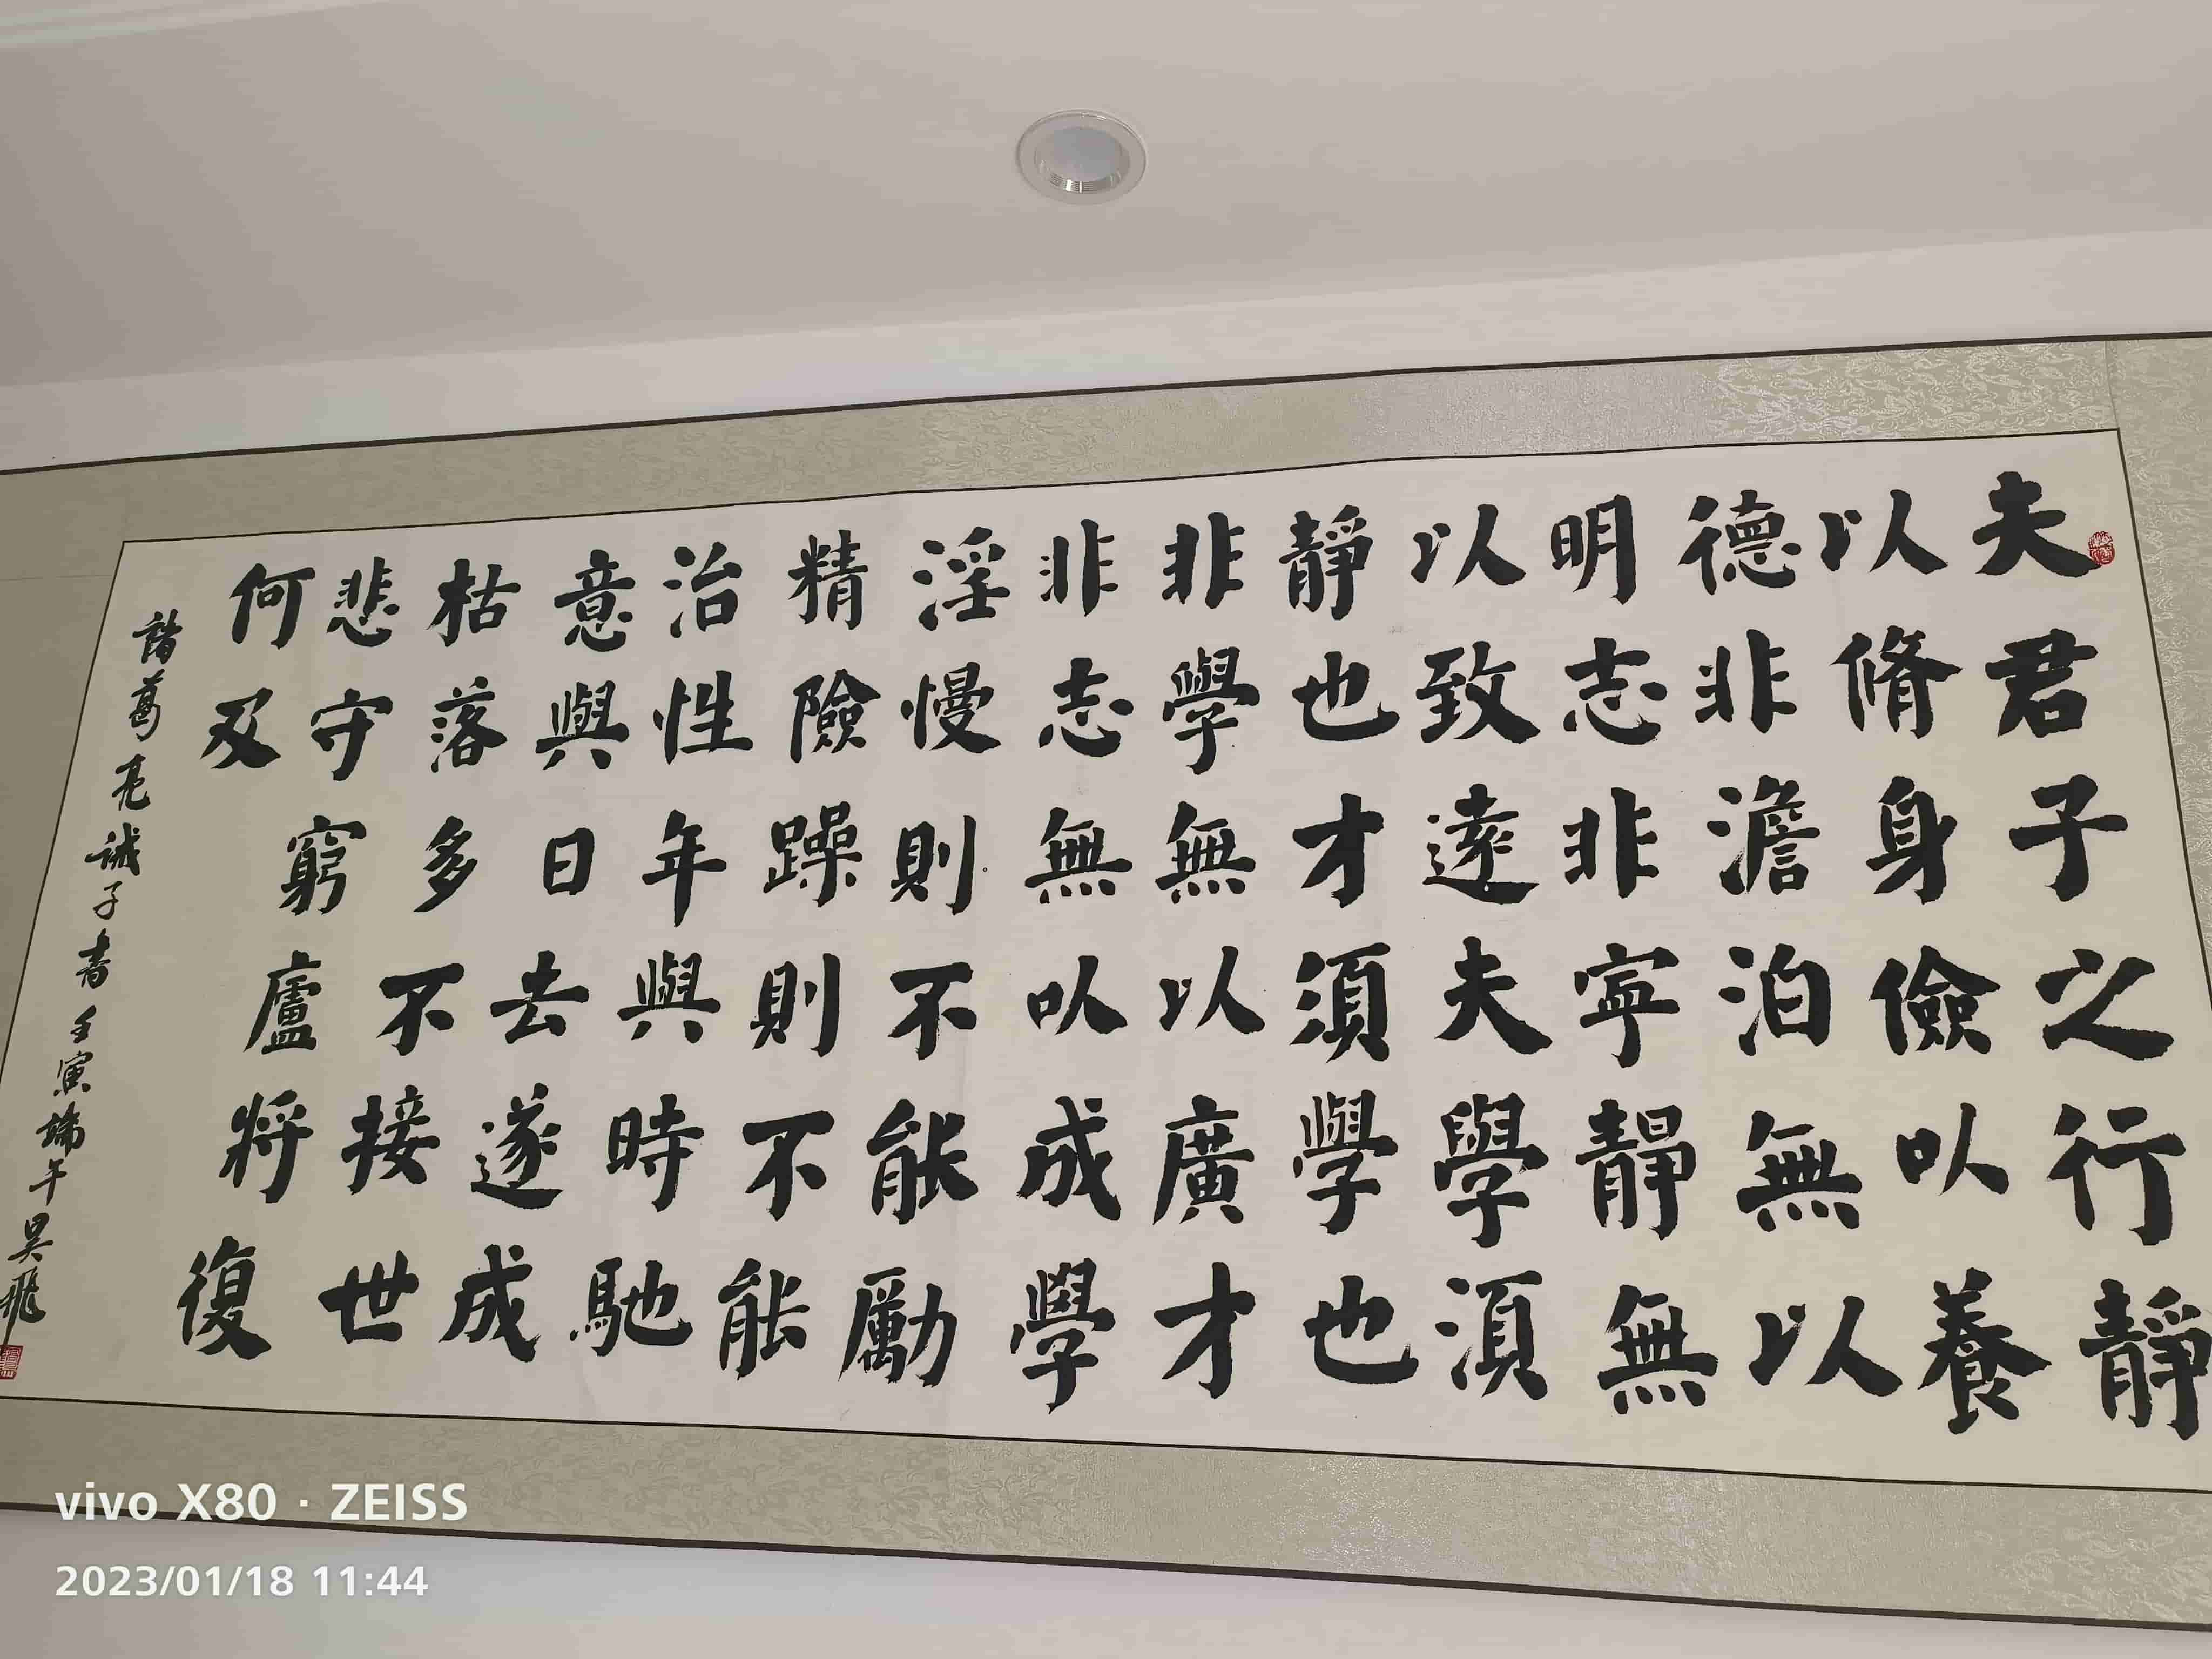 夫君子之行靜
以脩身儉以養
德非澹泊無以
明志非寧靜無
以致遠夫學須
靜也才須學也
非學無以廣才
非志無以成學
淫慢則不能勵
精險躁則不能
治性年與時馳
意與日去遂成
枯落多不接世
悲守窮廬將復
何及
諸葛亮誡子書壬寅端午昊飛
vivo X80 · ZEISS
2023/01/18 11:44